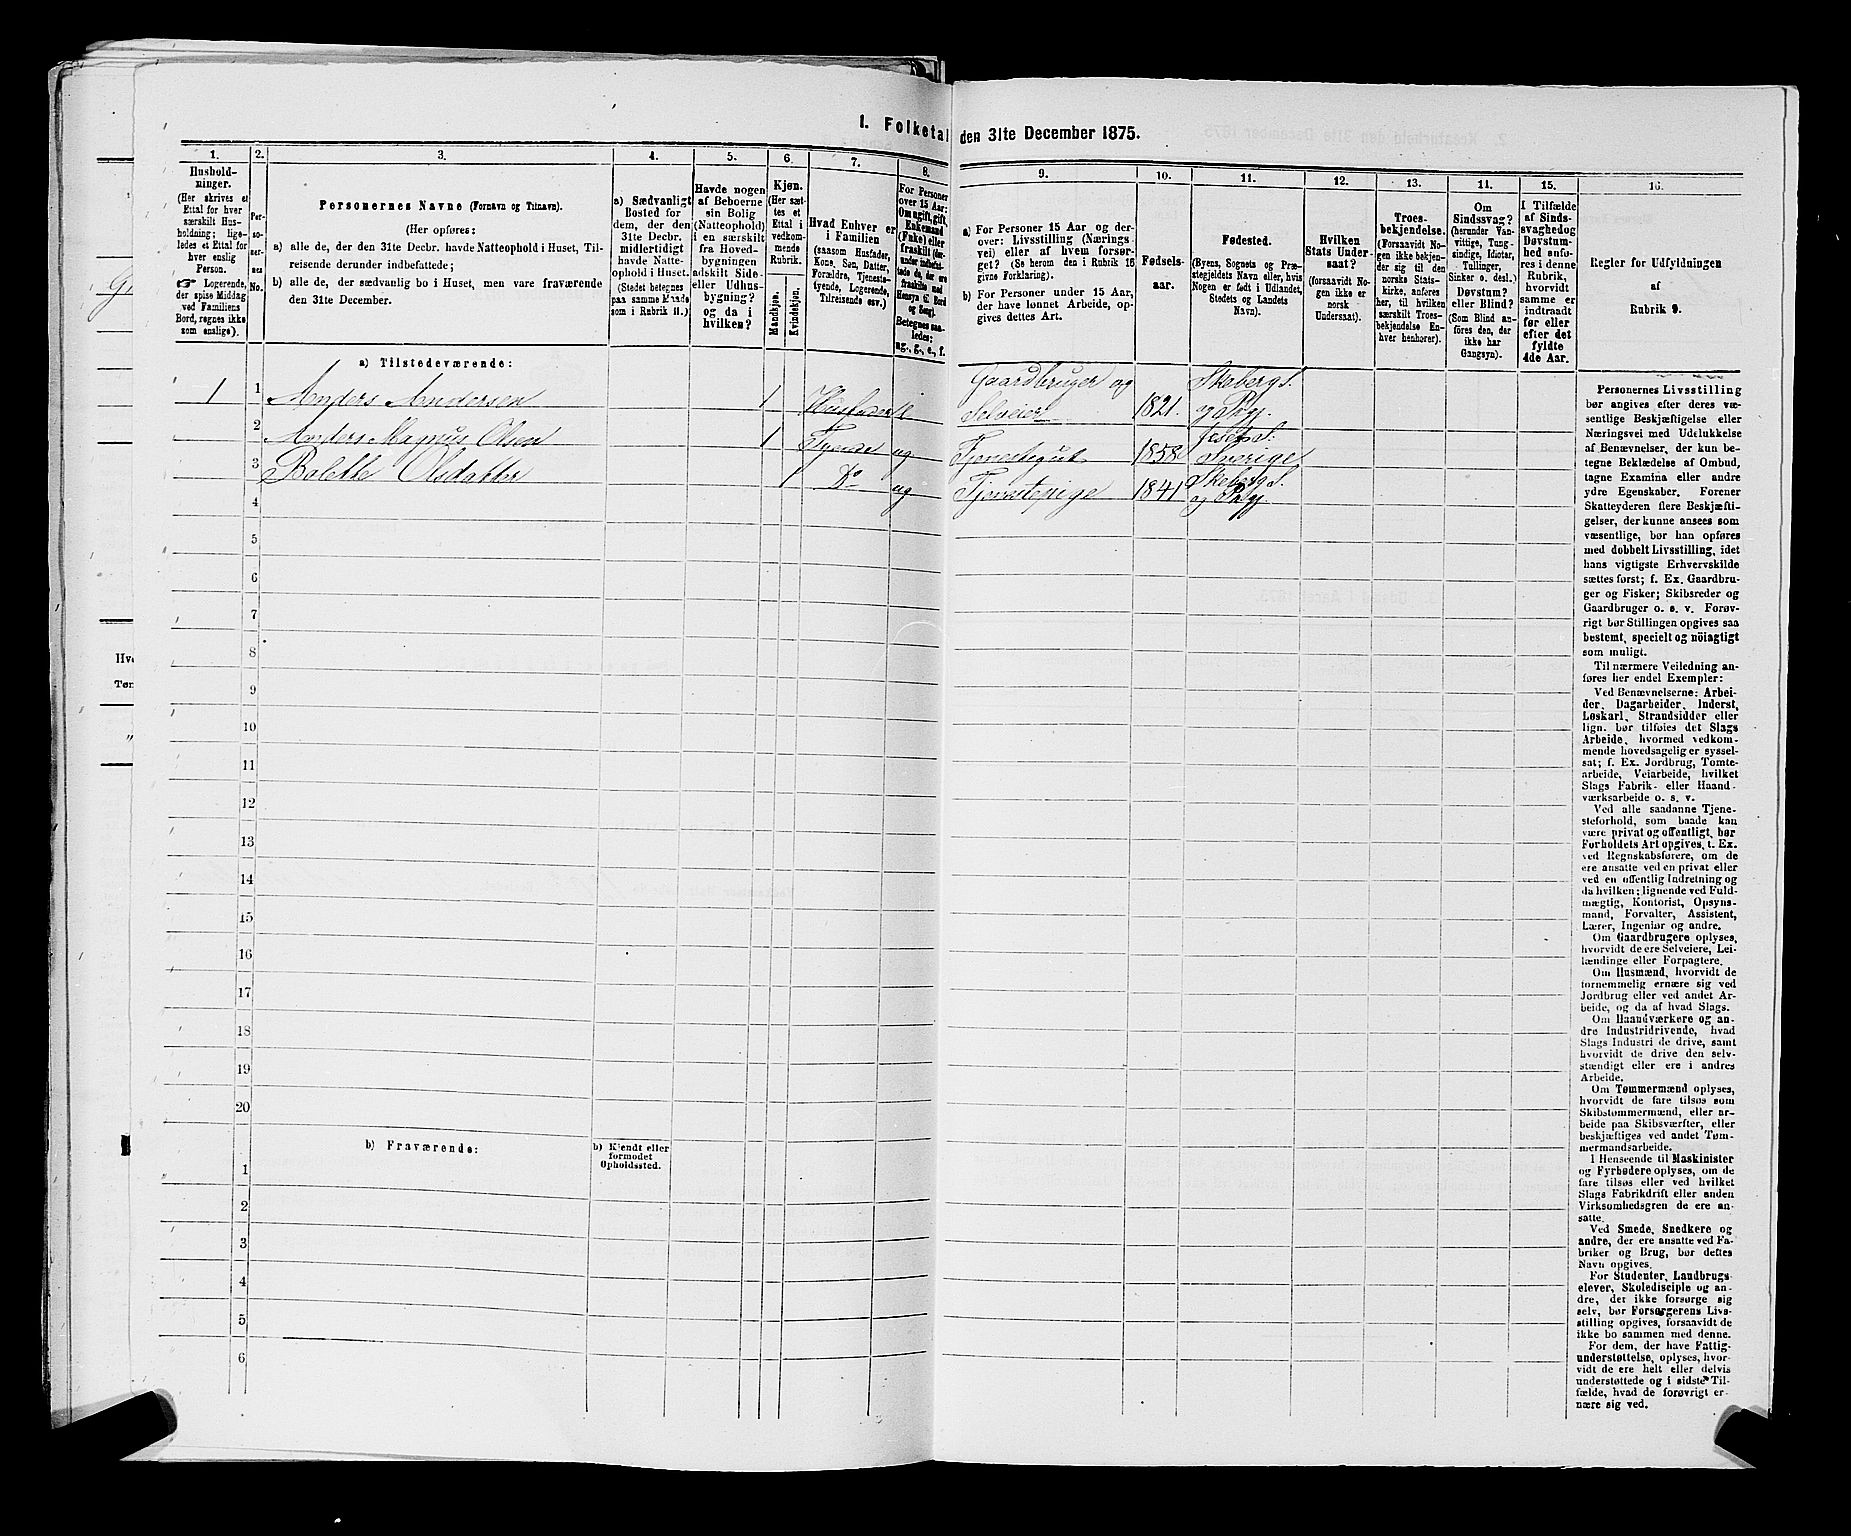 I. Folketal den 31te December 1875.
1. 2. 3. 4. 5. 6. 7. 8. 9. 10. 11. 12. 13. 14. 15. 16.
Hushold-
ninger.
(Her skrives et
Ettal for hver
særskilt Hus-
holdning; lige-
ledes et Ettal for
hver enslig
Person.
☛ Logerende,
der spise Middag
ved Familiens
Bord, regnes ikke
som enslige).
Per-
so-
ner-
nes
No.
Personernes Navne (Fornavn og Tilnavn).
(Her opføres:
a) alle de, der den 31te Decbr. havde Natteophold i Huset, Til-
reisende derunder indbefattede;
b) alle de, der sædvanlig bo i Huset, men vare fraværende
den 31te December.
a) Sædvanligt
Bosted for
dem, der den
31te Decbr.
midlertidigt
havde Natte-
ophold i Huset.
(Stedet betegnes
paa samme Maade
som i Rubrik 11.)
Havde nogen
af Beboerne
sin Bolig
(Natteophold)
i en særskilt
fra Hoved-
bygningen
adskilt Side-
eller Udhus-
bygning?
og da i
hvilken?
Kjøn.
(Her sæt-
tes et
Ettal i
vedkom-
mende
Rubrik.
Mandkjøn.
Kvindekjøn.
Hvad Enhver er
i Familien
(saasom Husfader,
Kone, Søn, Datter,
Forældre, Tjeneste-
tyende, Logerende,
Tilreisende osv.)
For Personer
over 15 Aar:
Om ugift, gift,
Enkemand
(Enke) eller
fraskilt (der-
under indbefat-
tede de, der ere
fraskilte med
Hensyn til Bord
og Seng).
Betegnes saa-
ledes:
ug., g., e., f.
a) For Personer 15 Aar og der-
over: Livsstilling (Nærings-
vei) eller af hvem forsør-
get? (Se herom den i Rubrik 16
givne Forklaring).
b) For Personer under 15 Aar,
der have lønnet Arbeide, op-
gives dettes Art.
Fødsels-
aar.
Fødested.
(Byens, Sognets og Præ-
stegjeldets Navn eller, hvis
Nogen er født i Udlandet,
Stedets og Landets
Navn).
Hvilken
Stats Under-
saat?
(forsaavidt No-
gen ikke er
norsk
Undersaat).
Troes-
bekjendelse.
(Forsaavidt No-
gen ikke bekjen-
der sig til den
norske Stats-
kirke, anføres
her, til hvilken
særskilt Troes-
bekjendelse En-
hver henhører).
Om
Sindssvag?
(herunder Van-
vittige, Tung-
sindige, Idioter,
Tullinger,
Sinker o. desl.)
Døvstum?
eller Blind?
(Som Blind an-
føres den, der
ikke har
Gangsyn).
I Tilfælde
af Sinds-
svaghed og
Døvstum-
hed anfø-
res i denne
Rubrik,
hvorvidt
samme er
indtraadt
før eller
efter det
fyldte
4de Aar.
Regler for Udfyldningen
af
Rubrik 9.
a) Tilstedeværende:
1 1 Anders Andersen 1 Husfader e Gaardbruger og Selveier 1821. Skeberg S. og Pgj.
2 Anders Magnus Olsen 1 Tyende ug Tjenestegut 1858 Sverige
3 Bolette Olsdatter 1 Do ug Tjenestepige 1841 Skeberg S. og Pgj.
4
5
6
7
8
9
10
11
12
13
14
15
16
17
18
19
20
b) Fraværende:
b) Kjendt eller
formodet
Opholdssted.
1
2
3
4
5
6
Personernes Livsstilling
bør angives efter deres væ-
sentlige Beskjæftigelse eller
Næringsvei med Udelukkelse
af Benævnelser, der kun be-
tegne Beklædelse af Ombud,
tagne Examina eller andre
ydre Egenskaber. Forener
Skatteyderen flere Beskjæfti-
gelser, der kunne ansees som
væsentlige, bør han opføres
med dobbelt Livsstilling, idet
hans vigtigste Erhvervskilde
sættes først; f. Ex. Gaardbru-
ger og Fisker; Skibsreder og
Gaardbruger o. s. v. Forøv-
rigt bør Stillingen opgives saa
bestemt, specielt og nöiagtigt
som muligt.
Til nærmere Veiledning an-
føres her endel Exempler:
Ved Benævnelserne: Arbei-
der, Dagarbeider, Inderst,
Løskarl, Strandsidder eller
lign. bør tilføies det Slags
Arbeide, hvormed vedkom-
mende hovedsagelig er syssel-
sat; f. Ex. Jordbrug, Tomte-
arbeide, Veiarbeide, hvilket
Slags Fabrik- eller Haand-
værksarbeide o. s. v.
Ved alle saadanne Tjene-
steforhold, som baade kan
være privat og offentligt, bør
Forholdets Art opgives, t. Ex.
ved Regnskabsførere, om de
ere ansatte ved en privat eller
ved en offentlig Indretning og
da hvilken; lignende ved Fuld-
mægtig, Kontorist, Opsyns-
mand, Forvalter, Assistent,
Lærer, Ingeniør og andre.
Om Gaardbrugere oplyses,
hvorvidt de ere Selveiere, Lei-
lændinge eller Forpagtere.
Om Husmænd, hvorvidt de
fornemmelig ernære sig ved
Jordbrug eller ved andet Ar-
beide, og da af hvad Slags.
Om Haandværkere og an-
dre Industridrivende, hvad
Slags Industri de drive, samt
hvorvidt de drive den selv-
stændigt eller ere i andres
Arbeide.
Om Tømmermænd oplyses,
hvorvidt de fare tilsøs som
Skibstømmermænd, eller ar-
beide paa Skibsværfter, eller
beskjæftiges ved andet Tøm-
mermandsarbeide.
I Henseende til Maskinister
og Fyrbødere oplyses, om de
fare tilsøs eller ved hvilket
Slags Fabrikdrift eller anden
Virksomhedsgren de ere an-
satte.
Ved Smede, Snedkere og
andre, der ere ansatte ved Fa-
briker og Brug, bør dettes
Navn opgives.
For Studenter, Landbrugs-
elever, Skoledisciple og an-
dre, der ikke forsørge sig
selv, bør Forsørgerens Livs-
stilling opgives, forsaavidt de
ikke bo sammen med denne.
For dem, der have Fattig-
understøttelse, oplyses, hvor-
vidt de ere helt eller delvis
understøttede og i sidste Til-
fælde, hvad de forøvrigt er-
nære sig ved.